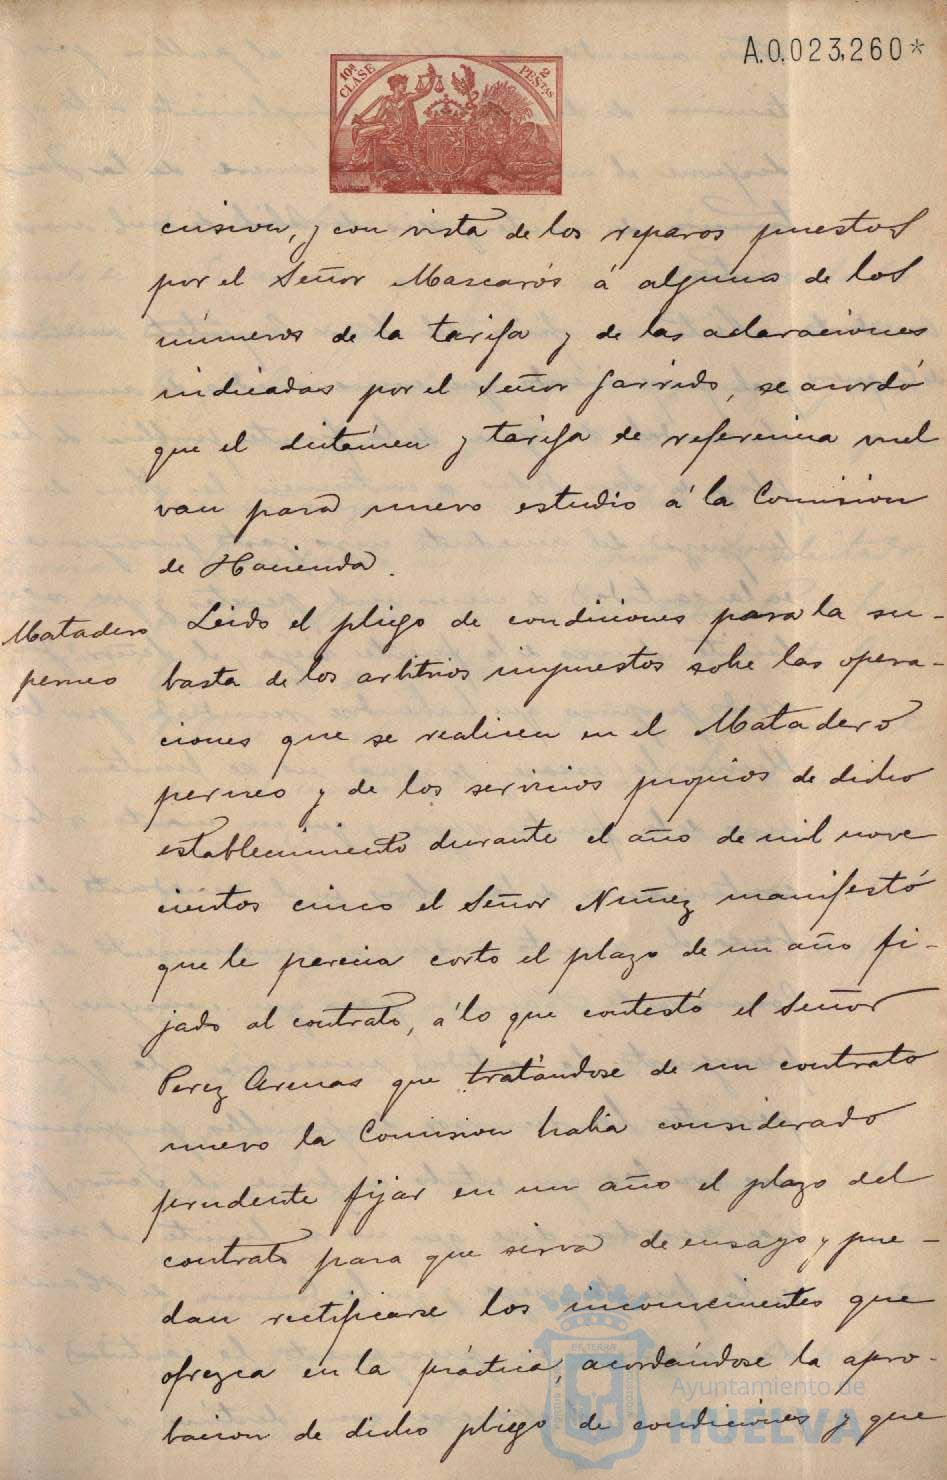 A.0.023,260*
10ª CLASE
2 PESTAS
cusion, y con vista de los reparos puestos
por el Señor Mascarós á alguno de los
números de la tarifa y de las aclaraciones
indicadas por el Señor Garrido, se acordó
que el dictámen y tarifa de referencia vuel
van para nuevo estudio á la Comision
de Hacienda.
Matadero
perneo
Leido el pliego de condiciones para la su-
basta de los arbitrios impuestos sobre las opera-
ciones que se realicen en el Matadero
perneo y de los servicios propios de dicho
establecimiento durante el año de mil nove
cientos cinco el Señor Nuñez manifestó
que le parecia corto el plazo de un año fi-
jado al contrato, á lo que contestó el Señor
Perez Arenas que tratándose de un contrato
nuevo la Comision habia considerado
prudente fijar en un año el plazo del
contrato para que sirva de ensayo y pue-
dan rectificarse los inconvenientes que
ofrezca en la práctica, acordándose la apro-
bacion de dicho pliego de condiciones y que
Ayuntamiento de
HUELVA